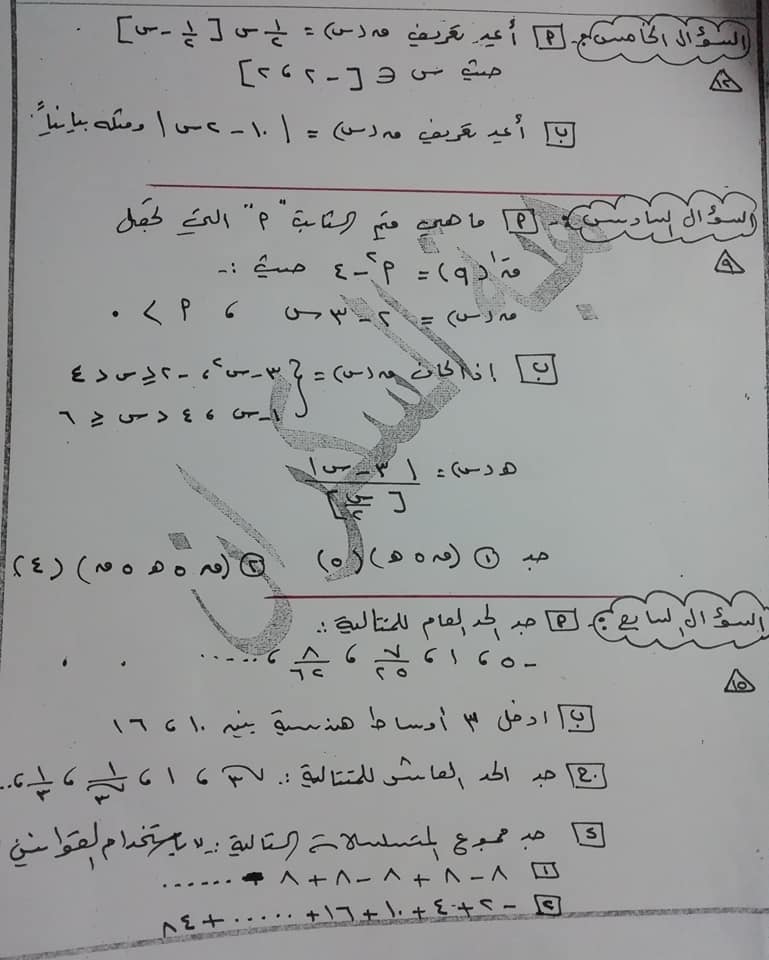 السؤال الخامس: [أ] أعيد تعريف ق(س) = ١/٢ س [١/٢ - س]
١٢
حيث س ∈ [-٢، ٢]
[ب] أعيد تعريف ق(س) = |١٠ - ٢س| ومثله بيانياً.
السؤال السادس: [أ] ما هي قيم الثابت "أ" التي تجعل
٩
حيث :-
ق(س) = ٢ - ٣س ، أ > ٠
[ب] إذا كان ق(س) = { ٣ - س٢ ، -٢ ≤ س < ٤
١ - س ، ٤ < س ≤ ٦
هـ(س) = |٣ - س| / [س/٢]
جد ① (ق ه هـ)(٥) ② (ق ه هـ ه ق)(٤)
السؤال السابع: [أ] جد الحد العام للمتتالية :.
١٥
-٥ ، ١ ، ٧/٢٥ ، ٨/٦٢ ، .....
[ب] ادخل ٣ أوساط هندسية بين ١٠ ، ١٦
[ج] جد الحد العاشر للمتتالية :. √٣ ، ١ ، ١/√٣ ، ١/٣ ، ..
[د] جد مجموع المتسلسلات التالية :. باستخدام القوانين
[١] ٨ - ٨ + ٨ - ٨ + ٨ - ......
[٢] -٢ + ٤ + ١٠ + ١٦ + ..... + ٨٤